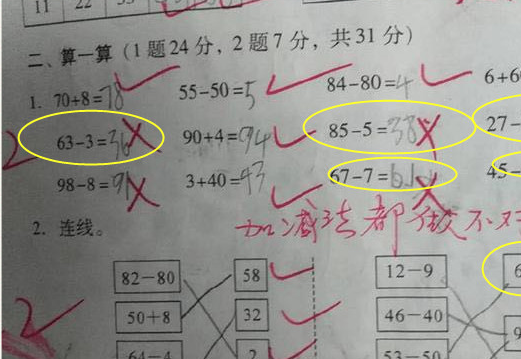 11 22 33
二、算一算(1题24分，2题7分，共31分)
1. 70+8=78 55-50=5 84-80=4 6+6
63-3=36 90+4=94 85-5=38 27-
98-8=91 3+40=43 67-7= 45-
2. 连线。 加减法都做不对
82-80 58 12-9 6
50+8 32 46-40 9
64-4 2 53-50